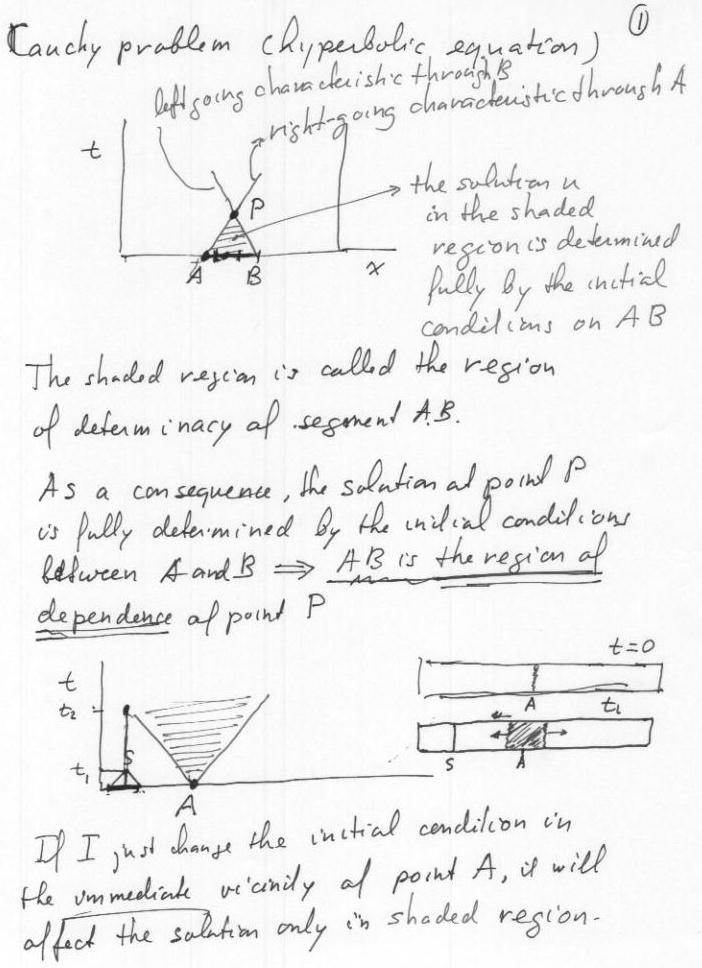 ①
Cauchy problem (hyperbolic equation)
left going characteristic through B
right-going characteristic through A
t
P
A B x
the solution u
in the shaded
region is determined
fully by the initial
conditions on AB
The shaded region is called the region
of determinacy of segment A.B.
As a consequence, the solution at point P
is fully determined by the initial conditions
between A and B ⇒ AB is the region of
dependence of point P
t
t₂
t₁
S
A
t=0
A t₁
S A
If I just change the initial condition in
the immediate vicinity of point A, it will
affect the solution only in shaded region.